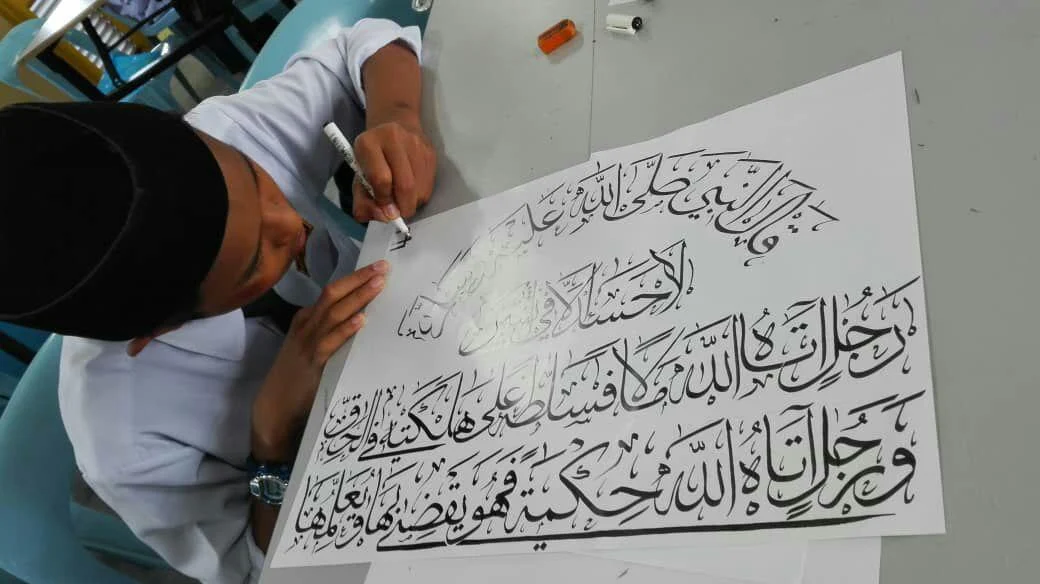 قَالَ النَّبِيُّ صَلَّى اللَّهُ عَلَيْهِ وَسَلَّمَ
لَا حَسَدَ إِلَّا فِي اثْنَتَيْنِ
رَجُلٍ آتَاهُ اللَّهُ مَالًا فَسَلَّطَهُ عَلَى هَلَكَتِهِ فِي الْحَقِّ
وَرَجُلٍ آتَاهُ اللَّهُ حِكْمَةً فَهُوَ يَقْضِي بِهَا وَيُعَلِّمُهَا